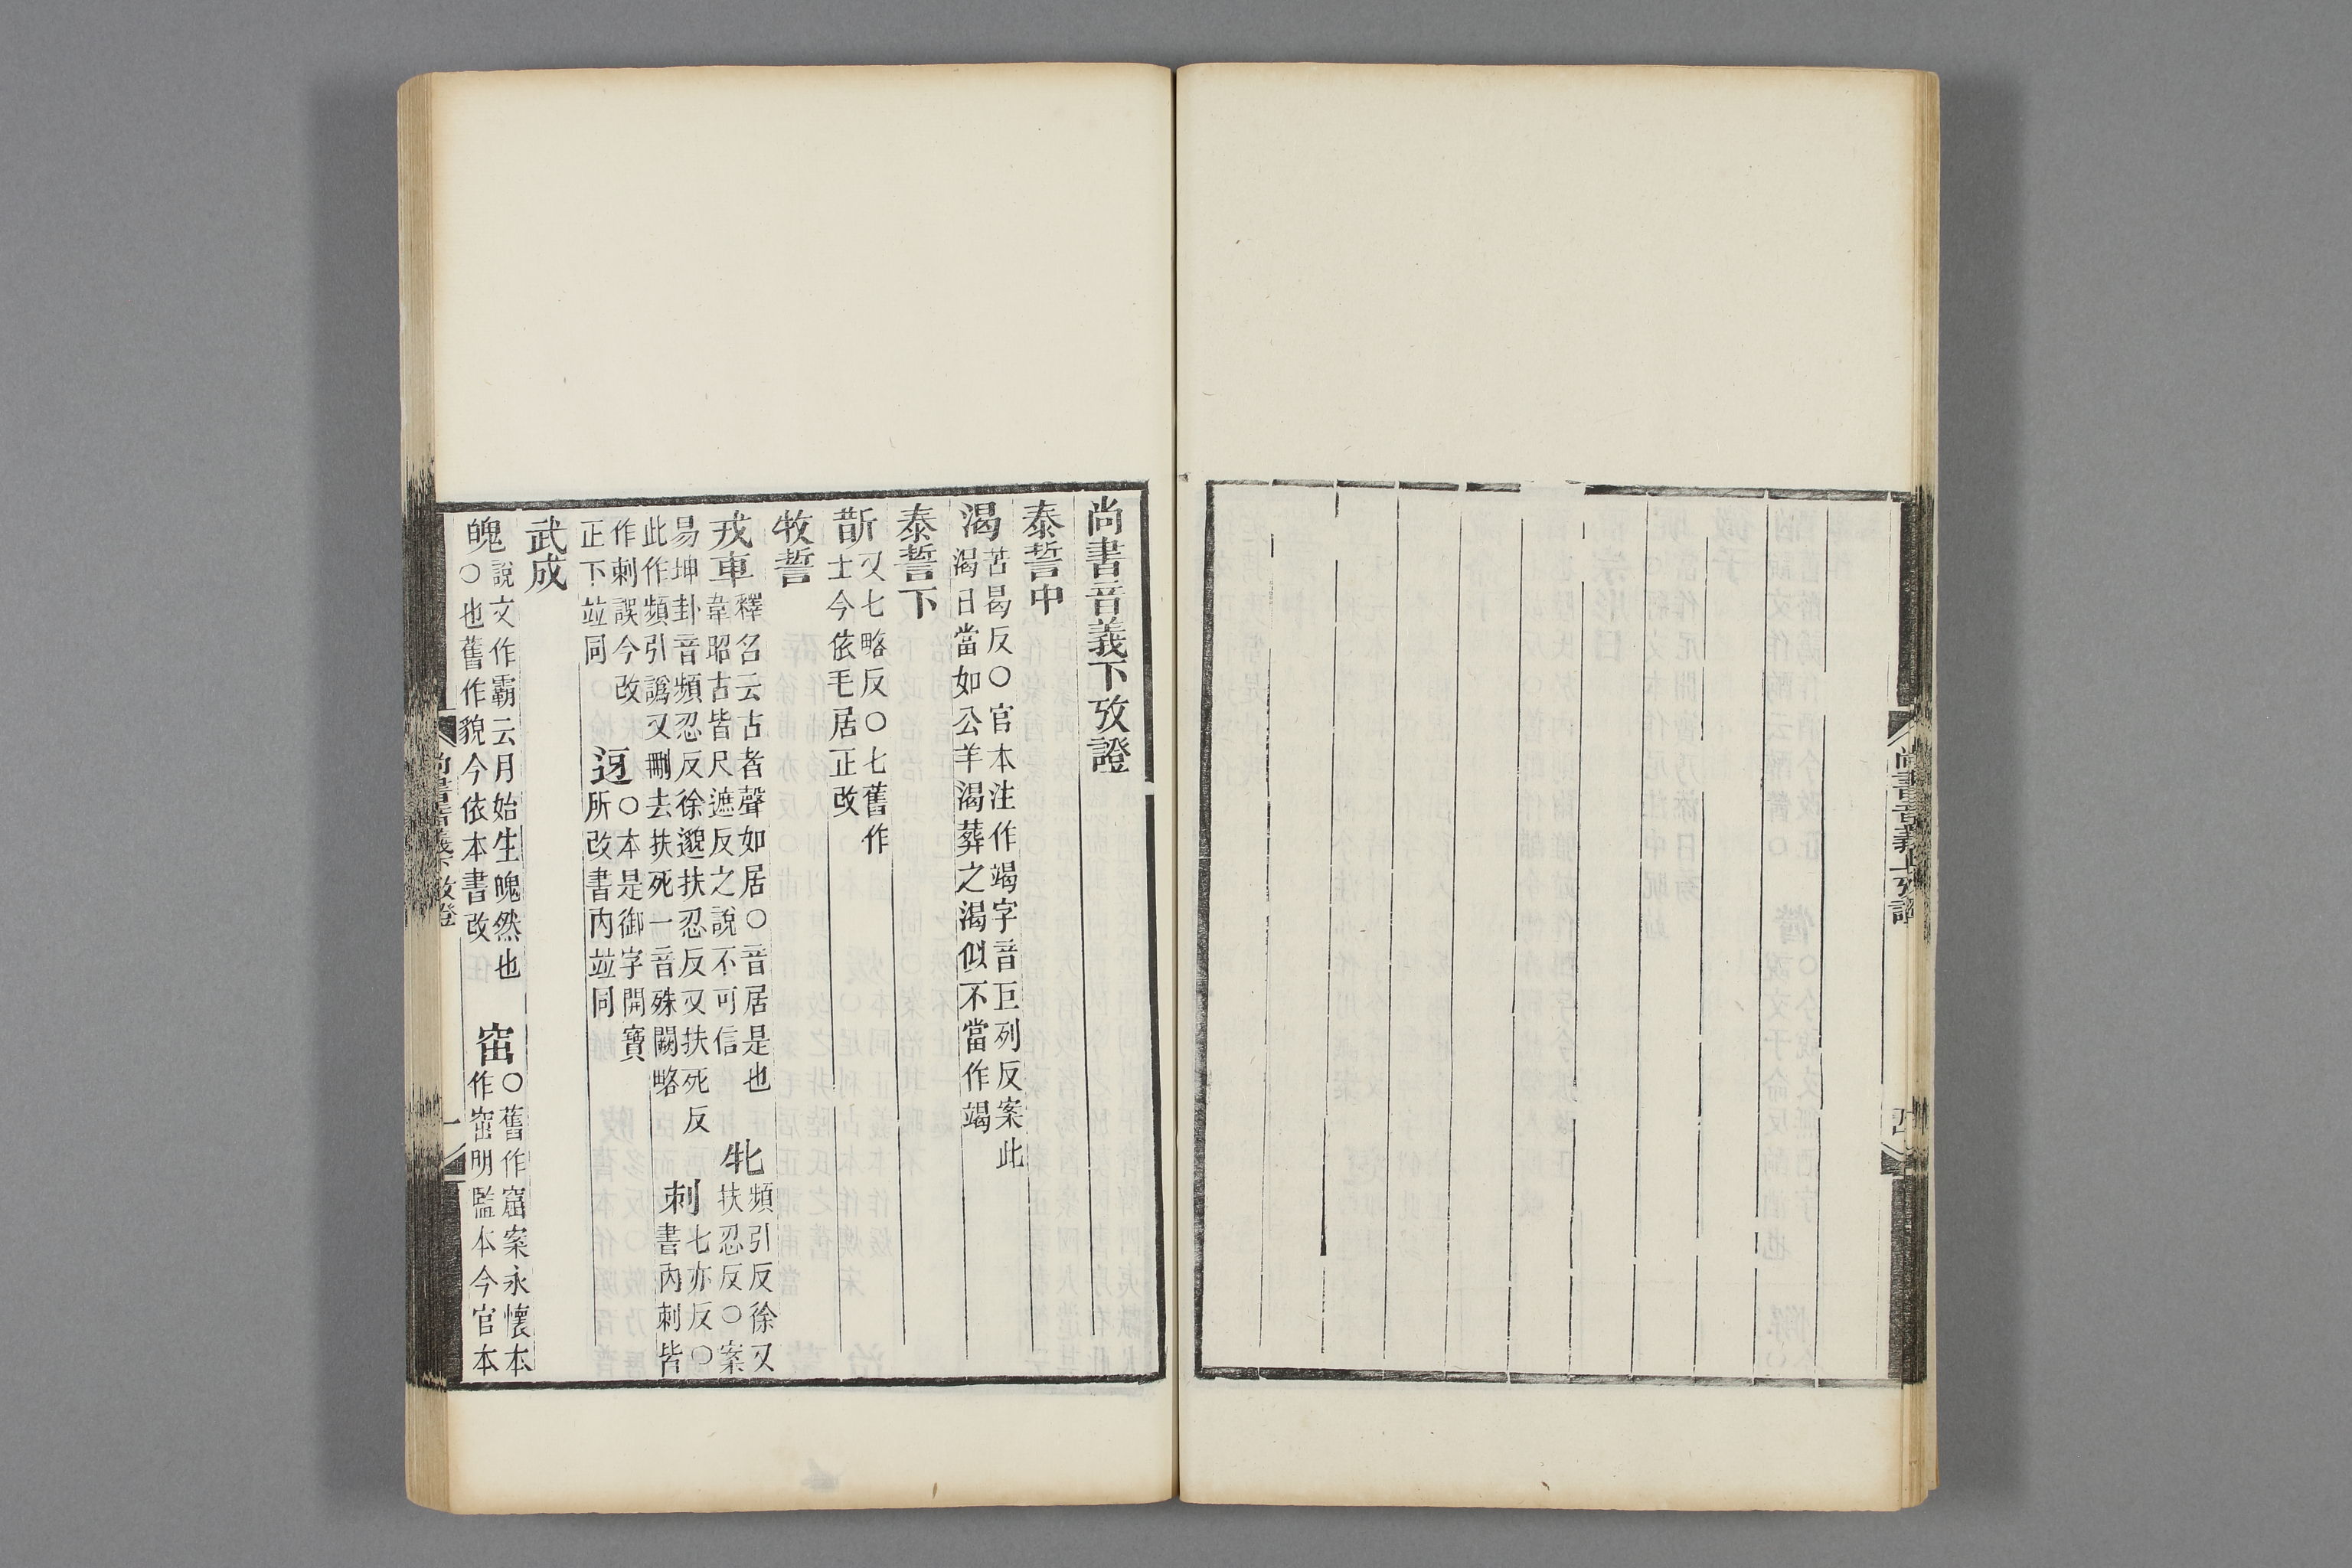 尚書音義上攷證
四
尚書音義下攷證
泰誓中
渴 苦曷反○官本注作竭字音巨列反案此
渴日當如公羊渴葬之渴似不當作竭
泰誓下
斮 又七略反○七舊作
士今依毛居正改
牧誓
戎車 釋名云古者聲如居○音居是也
韋昭古皆尺遮反之說不可信
牝 頻引反徐又
扶忍反○案
易坤卦音頻忍反徐邈扶忍反又扶死反
此作頻引譌又刪去扶死一音殊闕略
刺 七亦反○
書內刺皆
作刺誤今改
正下竝同
迓 ○本是御字開寶
所改書內竝同
武成
魄 說文作霸云月始生魄然也
○也舊作貌今依本書改
○舊作窟案永懷本
作窋明監本今官本
尚書音義下攷證
一